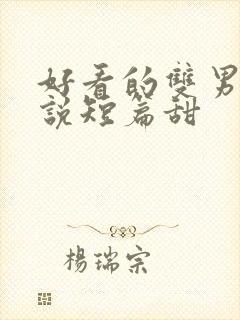 好看的雙男
說短篇甜
楊瑞宗